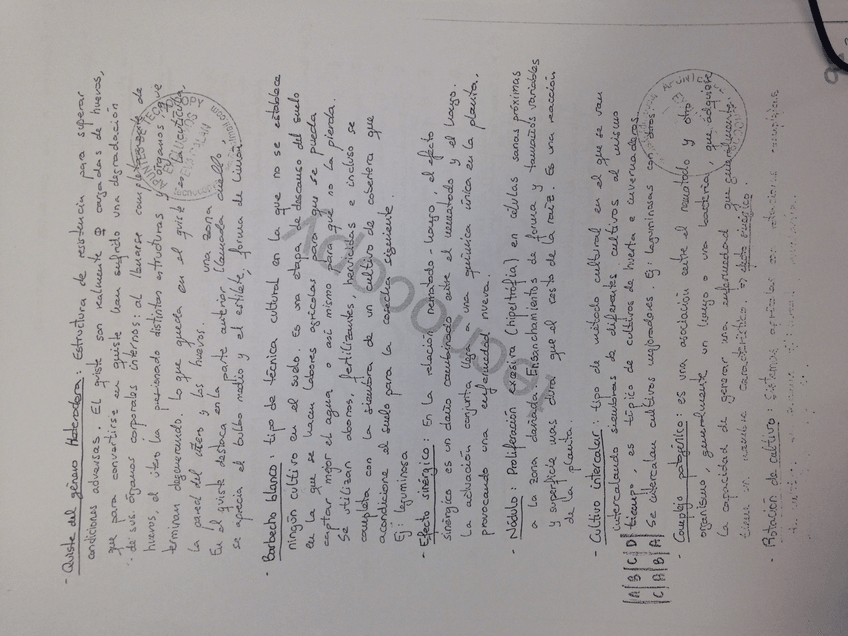 - Quiste del género Heterodera: Estructura de resistencia para superar
condiciones adversas. El quiste son realmente ♀ cargadas de huevos,
que para convertirse en quiste han sufrido una degradación
de sus órganos corporales internos: al llenarse completamente de
huevos, el útero ha presionado distintas estructuras y órganos que
terminan degenerando. Lo que queda en el quiste es la cutícula,
la pared del útero y los huevos.
En el quiste destaca en la parte anterior una zona llamada cuello,
se aprecia el bulbo medio y el estilete, forma de limón.
- Barbecho blanco: tipo de técnica cultural en la que no se establece
ningún cultivo en el suelo. Es una etapa de descanso del suelo
en la que se hacen labores agrícolas para que se pueda
captar mejor el agua o así mismo para que no la pierda.
Se utilizan abonos, fertilizantes, herbicidas e incluso se
completa con la siembra de un cultivo de cobertera que
acondicione el suelo para la cosecha siguiente.
Ej: leguminosa
- Efecto sinérgico: En la relación nematodo - hongo, el efecto
sinérgico es un daño combinado entre el nematodo y el hongo.
La actuación conjunta llega a una química única en la planta,
provocando una enfermedad nueva.
- Nódulo: Proliferación excesiva (hipertrofia) en células sanas próximas
a la zona dañada. Ensanchamientos de forma y tamaños variables
y superficie más dura que el resto de la raíz. Es una reacción
de la planta.
- Cultivo intercalar: tipo de método cultural en el que se van
intercalando siembras de diferentes cultivos al mismo
|A|B|C|D| tiempo, es típico de cultivos de huerta e invernaderos.
|C|A|B|A| Se intercalan cultivos mejoradores. Ej leguminosas con otros
- Complejo patogénico: es una asociación entre el nematodo y otro
organismo, generalmente un hongo o una bacteria, que adquiere
la capacidad de generar una enfermedad que generalmente
tiene un nombre característico. efecto sinérgico.
- Rotación de cultivo: Sistemas agrícolas en
tecnocopy